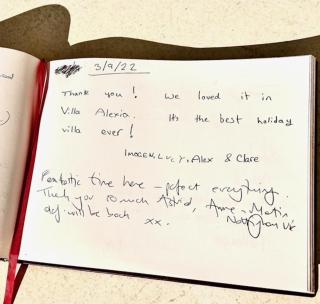 3/9/22
Thank you! We loved it in
Villa Alexia. Its the best holiday
villa ever!
Imogen, Lucy, Alex & Clare
Fantastic time here – perfect everything
Thank you so much Astrid,
Anne
Nottingham UK
def will be back xx.